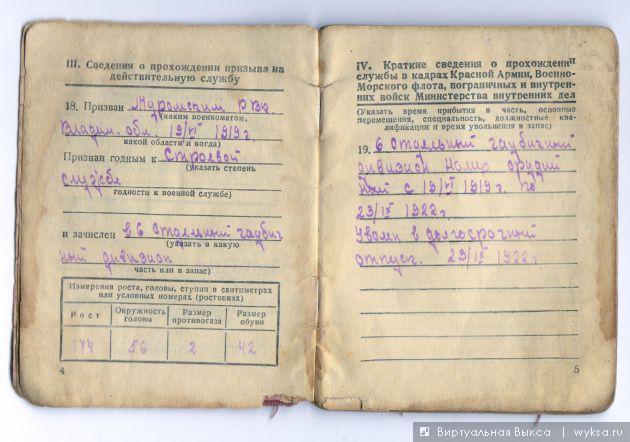 III. Сведения о прохождении призыва на
действительную службу
18. Призван Муромским РВК
(каким военкоматом,
Владим. обл. 19/VI 1919 г
какой области и когда)
Признан годным к Строевой
(указать степень
службе
годности к военной службе)
и зачислен в 6 Отдельный гаубич
(указать в какую
ный дивизион
часть или в запас)
Измерения роста, головы, ступни в сантиметрах
или условных номерах (ростовках)
Рост
Окружность
головы
Размер
противогаза
Размер
обуви
174 56 2 42
4
IV. Краткие сведения о прохождении
службы в кадрах Красной Армии, Военно-
Морского флота, пограничных и внутрен-
них войск Министерства внутренних дел
(Указать время прибытия в часть, основные
перемещения, специальность, должностные ква-
лификации и время увольнения в запас)
19. 6 Отдельный гаубичный
дивизион Номер орудий
ный с 19/VI 1919 г. по
23/IX 1922 г.
Уволен в долгосрочный
отпуск. 23/IX 1922 г
5
Виртуальная Выкса | wyksa.ru